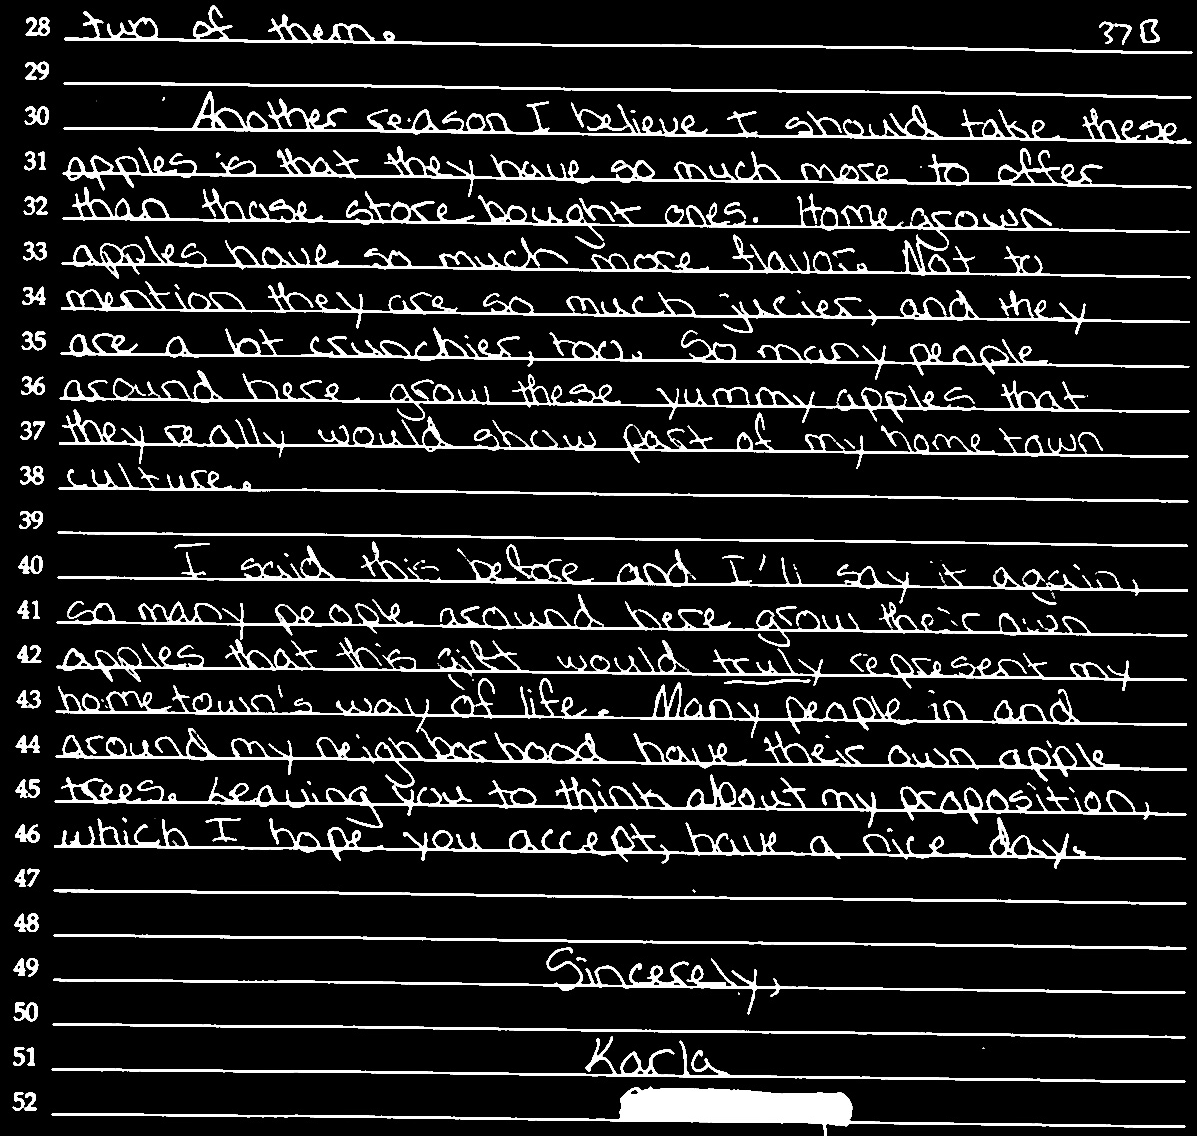 28 two of them. 37B
29
30 Another reason I believe I should take these
31 apples is that they have so much more to offer
32 than those store bought ones. Home grown
33 apples have so much more flavor. Not to
34 mention they are so much jucier, and they
35 are a lot crunchier, too. So many people
36 around here grow these yummy apples that
37 they really would show part of my home town
38 culture.
39
40 I said this before and I'll say it again,
41 so many people around here grow their own
42 apples that this gift would truly represent my
43 home town's way of life. Many people in and
44 around my neighborhood have their own apple
45 trees. Leaving you to think about my proposition,
46 which I hope you accept, have a nice day.
47
48
49 Sincerely,
50
51 Karla
52